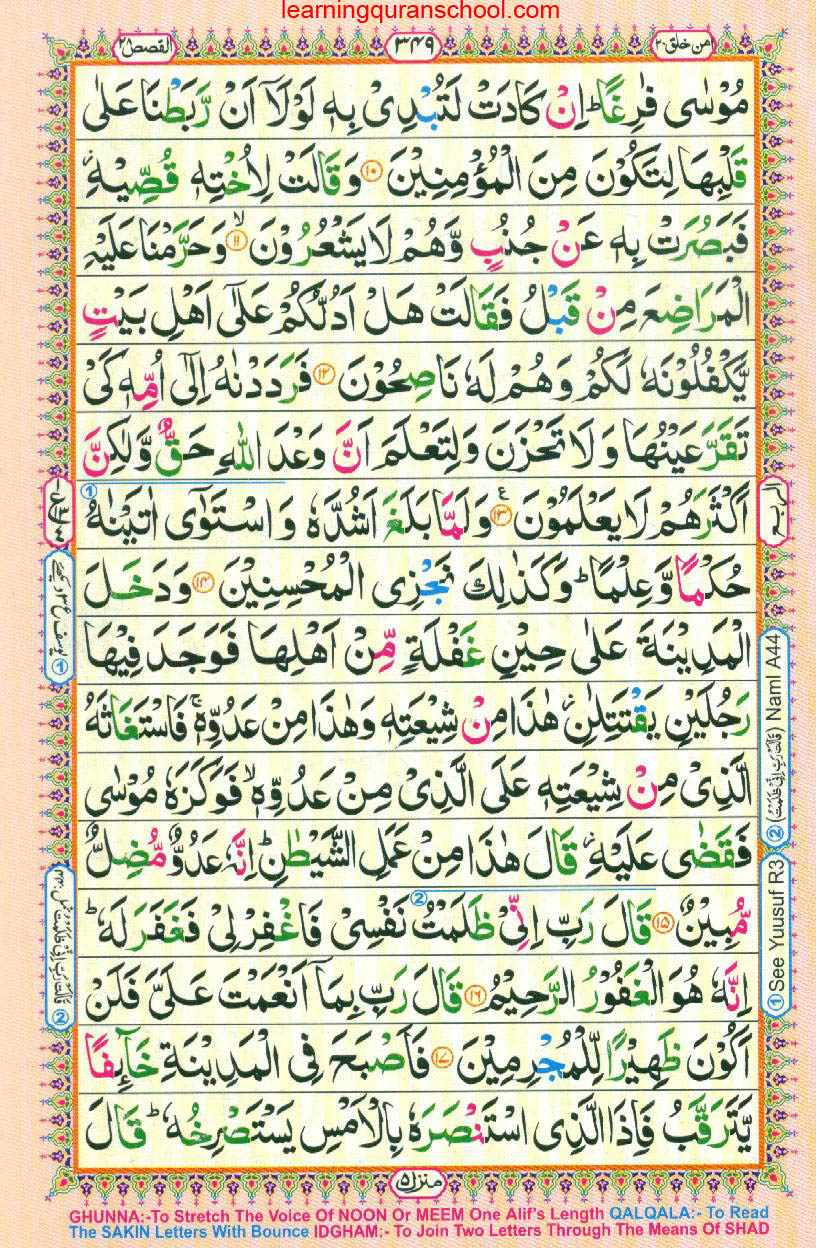 learningquranschool.com
القصص ٢٨
٣٤٩
امن خلق ٢٠
مُوْسٰى فٰرِغًا ؕ اِنْ كَادَتْ لَتُبْدِیْ بِهٖ لَوْلَاۤ اَنْ رَّبَطْنَا عَلٰى
قَلْبِهَا لِتَكُوْنَ مِنَ الْمُؤْمِنِیْنَ ۝۱۰ وَ قَالَتْ لِاُخْتِهٖ قُصِّیْهِ ؗ
فَبَصُرَتْ بِهٖ عَنْ جُنُبٍ وَّهُمْ لَا یَشْعُرُوْنَ ۙ۝۱۱ وَ حَرَّمْنَا عَلَیْهِ
الْمَرَاضِعَ مِنْ قَبْلُ فَقَالَتْ هَلْ اَدُلُّكُمْ عَلٰۤى اَهْلِ بَیْتٍ
یَّكْفُلُوْنَهٗ لَكُمْ وَهُمْ لَهٗ نَاصِحُوْنَ ۝۱۲ فَرَدَدْنٰهُ اِلٰۤى اُمِّهٖ كَیْ
تَقَرَّ عَیْنُهَا وَلَا تَحْزَنَ وَلِتَعْلَمَ اَنَّ وَعْدَ اللّٰهِ حَقٌّ وَّلٰكِنَّ
اَكْثَرَهُمْ لَا یَعْلَمُوْنَ ۝۱۳ ع وَلَمَّا بَلَغَ اَشُدَّهٗ وَاسْتَوٰۤى اٰتَیْنٰهُ
حُكْمًا وَّعِلْمًا ؕ وَكَذٰلِكَ نَجْزِی الْمُحْسِنِیْنَ ۝۱۴ وَدَخَلَ
الْمَدِیْنَةَ عَلٰى حِیْنِ غَفْلَةٍ مِّنْ اَهْلِهَا فَوَجَدَ فِیْهَا
رَجُلَیْنِ یَقْتَتِلٰنِ ؗ هٰذَا مِنْ شِیْعَتِهٖ وَهٰذَا مِنْ عَدُوِّهٖ ۚ فَاسْتَغَاثَهُ
الَّذِیْ مِنْ شِیْعَتِهٖ عَلَى الَّذِیْ مِنْ عَدُوِّهٖ ۙ فَوَكَزَهٗ مُوْسٰى
فَقَضٰى عَلَیْهِ ؗ قَالَ هٰذَا مِنْ عَمَلِ الشَّیْطٰنِ ؕ اِنَّهٗ عَدُوٌّ مُّضِلٌّ
مُّبِیْنٌ ۝۱۵ قَالَ رَبِّ اِنِّیْ ظَلَمْتُ نَفْسِیْ فَاغْفِرْ لِیْ فَغَفَرَ لَهٗ ؕ
اِنَّهٗ هُوَ الْغَفُوْرُ الرَّحِیْمُ ۝۱۶ قَالَ رَبِّ بِمَاۤ اَنْعَمْتَ عَلَیَّ فَلَنْ
اَكُوْنَ ظَهِیْرًا لِّلْمُجْرِمِیْنَ ۝۱۷ فَاَصْبَحَ فِی الْمَدِیْنَةِ خَآىِٕفًا
یَّتَرَقَّبُ فَاِذَا الَّذِی اسْتَنْصَرَهٗ بِالْاَمْسِ یَسْتَصْرِخُهٗ ؕ قَالَ
① See Yuusuf R3 ② (قَالَتْ رَبِّ اِنِّیْ ظَلَمْتُ) Naml A44
منزل ۵
GHUNNA:-To Stretch The Voice Of NOON Or MEEM One Alif's Length QALQALA:- To Read
The SAKIN Letters With Bounce IDGHAM:- To Join Two Letters Through The Means Of SHAD